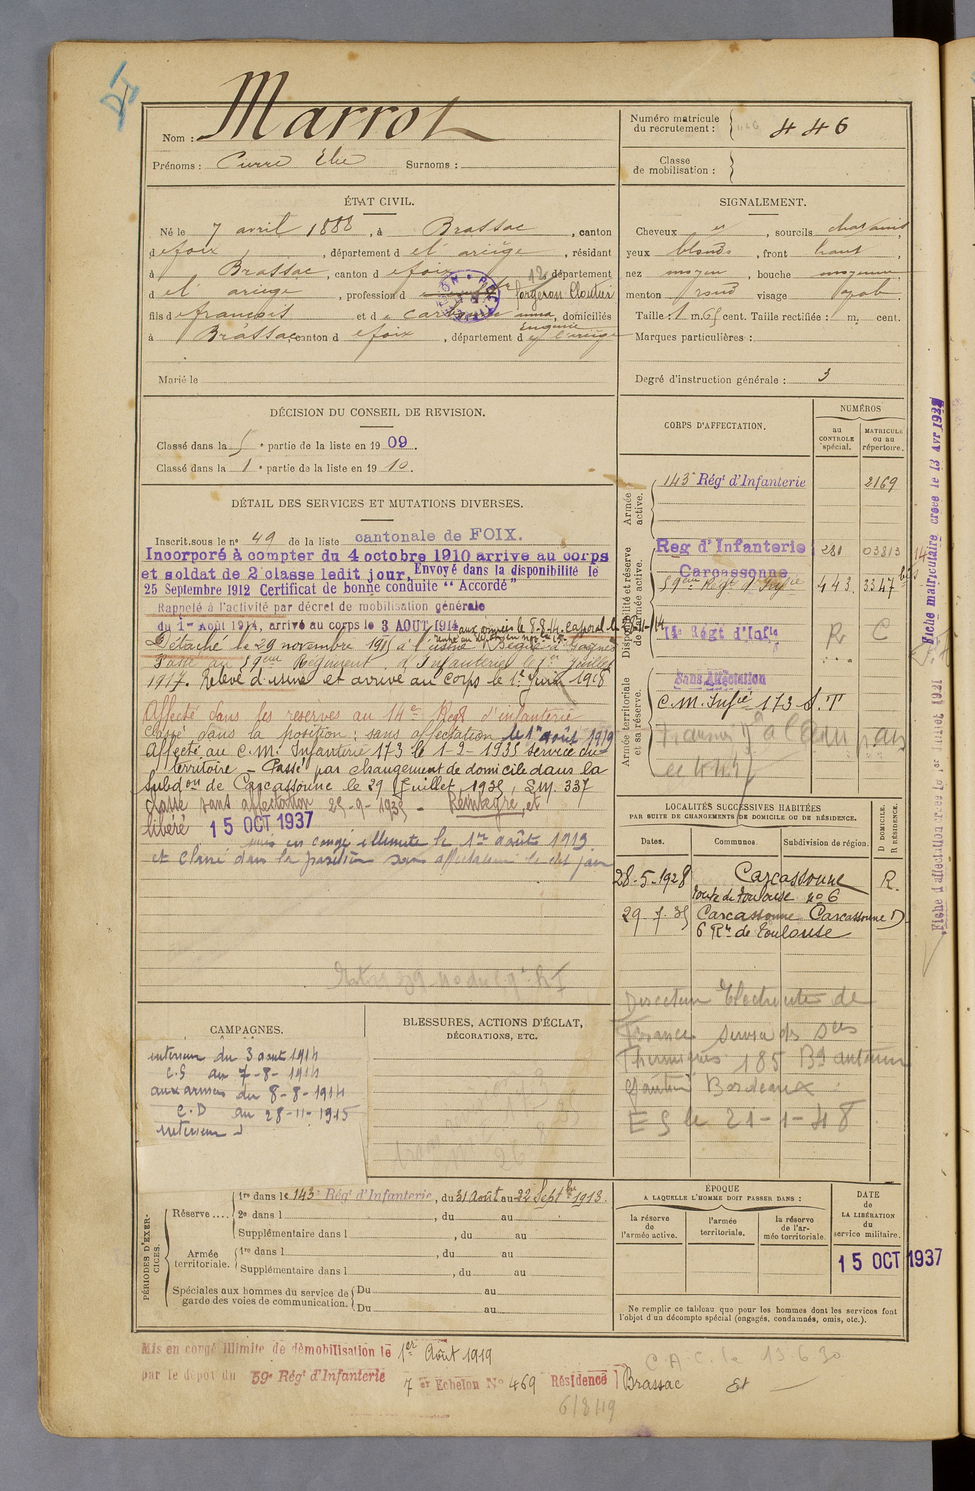 Nom : Marrot
Prénoms : Pierre Elie Surnoms :
Numéro matricule du recrutement : 446
Classe de mobilisation :
ÉTAT CIVIL.
Né le 7 avril 1888, à Brassac, canton
de foix, département de l'ariège, résidant
à Brassac, canton de foix, département
de l'ariège, profession de forgeron Cloutier
fils de françois et de anna Eugénie, domiciliés
à Brassac canton de foix, département de l'ariège
Marié le
SIGNALEMENT.
Cheveux et, sourcils chatains
yeux blonds, front haut,
nez moyen, bouche moyenne
menton rond visage ovale
Taille : 1 m. 65 cent. Taille rectifiée : m. cent.
Marques particulières :
Degré d'instruction générale : 3
DÉCISION DU CONSEIL DE REVISION.
Classé dans la 5e partie de la liste en 1909.
Classé dans la 1e partie de la liste en 1910.
DÉTAIL DES SERVICES ET MUTATIONS DIVERSES.
Inscrit sous le n° 49 de la liste cantonale de FOIX.
Incorporé à compter du 4 octobre 1910 arrive au corps
et soldat de 2e classe ledit jour. Envoyé dans la disponibilité le
25 Septembre 1912 Certificat de bonne conduite "Accordé"
Rappelé à l'activité par décret de mobilisation générale
du 1er Août 1914, arrivé au corps le 3 AOUT 1914 aux armées le 8-8-14. Caporal le 28-11-14
Détaché le 29 novembre 1915 à l'usine
Passé au 59eme Régiment d'Infanterie le 1er Juillet
1917. Relevé d'usine et arrivé au Corps le 1er Juin 1918
Affecté dans les reserves au 14e Regt d'infanterie
Classé dans la position : sans affectation le 1er août 1919
Affecté au C.M. Infanterie 173 le 1-2-1935 service du
territoire - Passé par changement de domicile dans la
Subdon de Carcassonne le 29 Juillet 1935, LM. 337
Classé sans affectation 25-9-1935 - Réintégré, et
libéré 15 OCT 1937
mis en congé illimité le 1er août 1919
et classé dans la position sans affectation le dit jour
CORPS D'AFFECTATION.
NUMÉROS
au CONTROLE spécial.
MATRICULE ou au répertoire.
Armée active.
143e Régt d'Infanterie 2169
Disponibilité et réserve de l'armée active.
Reg d'Infanterie Carcassonne 281 03813
59eme Regt d'Infie 443 3347
14e Régt d'Infie
Armée territoriale et sa réserve.
Sans Affectation
C.M. Infie 173 S.T
LOCALITÉS SUCCESSIVES HABITÉES
PAR SUITE DE CHANGEMENTS DE DOMICILE OU DE RÉSIDENCE.
Dates. Communes Subdivision de région. D DOMICILE. R RÉSIDENCE.
28-5-1928 Carcassonne R.
route de Toulouse no 6
29-7-35 Carcassonne Carcassonne D
6 Rte de Toulouse
Directeur Electricité de
France Service des
Thermiques 185 Bd antoine
Gautier Bordeaux
E S le 21-1-48
CAMPAGNES.
intérieur du 3 aout 1914
C.S au 7-8-1914
aux armées du 8-8-1914
C.D au 28-11-1915
intérieur
BLESSURES, ACTIONS D'ÉCLAT,
DÉCORATIONS, ETC.
PÉRIODES D'EXERCICES.
Réserve....
1re dans le 143e Régt d'Infanterie, du 31 Août au 22 Septbre 1913.
2e dans l, du au
Supplémentaire dans l, du au
Armée territoriale.
1re dans l, du au
Supplémentaire dans l, du au
Spéciales aux hommes du service de garde des voies de communication.
Du au
Du au
ÉPOQUE
A LAQUELLE L'HOMME DOIT PASSER DANS :
la réserve de l'armée active.
l'armée territoriale.
la réserve de l'armée territoriale.
DATE de LA LIBÉRATION du service militaire.
15 OCT 1937
Ne remplir ce tableau que pour les hommes dont les services font
l'objet d'un décompte spécial (engagés, condamnés, omis, etc.).
Mis en congé illimité de démobilisation le 1er Août 1919
par le dépôt du 59e Régt d'Infanterie 7er Echelon N° 469 Résidence Brassac
C.A.C. le 13-6-30
6/8/19
Fiche matriculaire créée le 13 Avr 1928